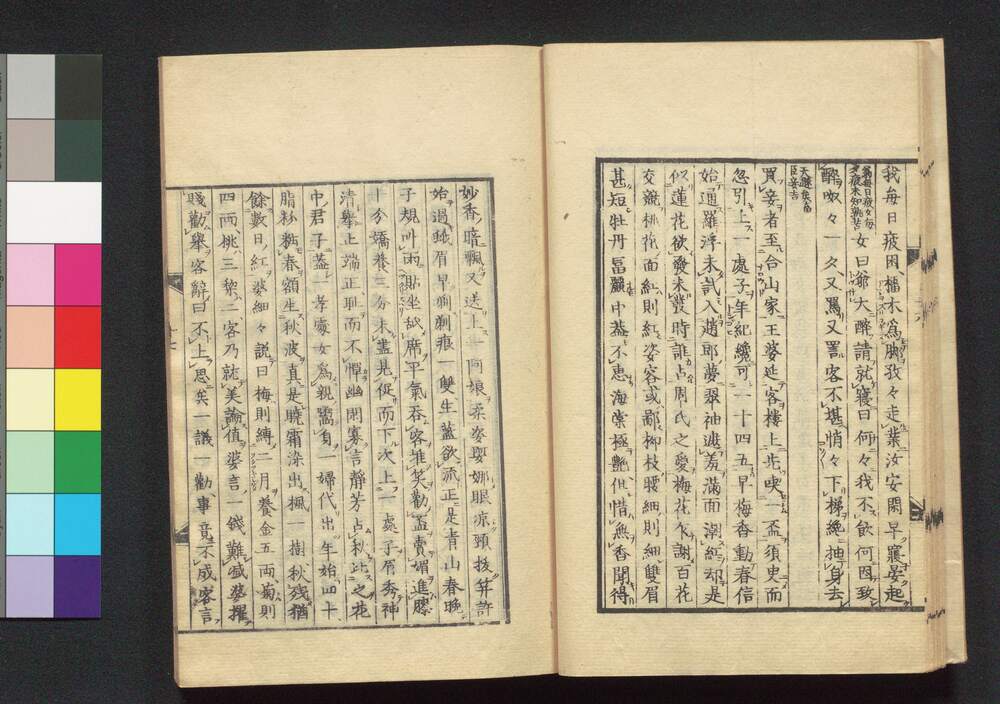 我毎日疲困橿木爲脚孜々走業汝安閑早寢安起
女曰爺大醉請就寢曰何々我不飮何因致
醉呶々一夕又罵又詈客不堪悄々下梯絶抽身去
買妾者至台山家王婆延客樓上先喫一盃須臾而
忽引上一處子年紀纔可二十四五早梅香動春信
始通羅浮未試入趙郎夢翠袖遮羞滿面潮紅却是
似蓮花欲發未發時誰占周氏之愛梅花乍謝百花
交競桃花面紅則紅姿容或鄙柳枝腰細則細雙眉
甚短牡丹冨麗中葢不惠海棠極艶但惜無香聞得
妙香暗飄又送上一向娘柔姿婀娜眼凉頸拔笄許
始過銕眉早剃剃痕一雙生藍欲流正是青山春晩
子規叫雨貼坐舐席平氣呑客堆笑勸盃賣媚進膝
十分嬌養三分未盡是促而下次上一處子眉秀神
清擧止端正耻而不憚幽閑寡言靜芳占秋此之花
中君子葢一孝處女爲親鬻身一婦代出年始四十
脂粉黏春額生秋波真是曉霜染出楓一樹秋殘猶
餘數日紅婆細々說曰梅則縛二月養金五兩菊則
四兩桃三黎二客乃就美論値婆言一錢難减婆擢
賤勸擧客辭曰不上思矣一議一勸事竟不成客言